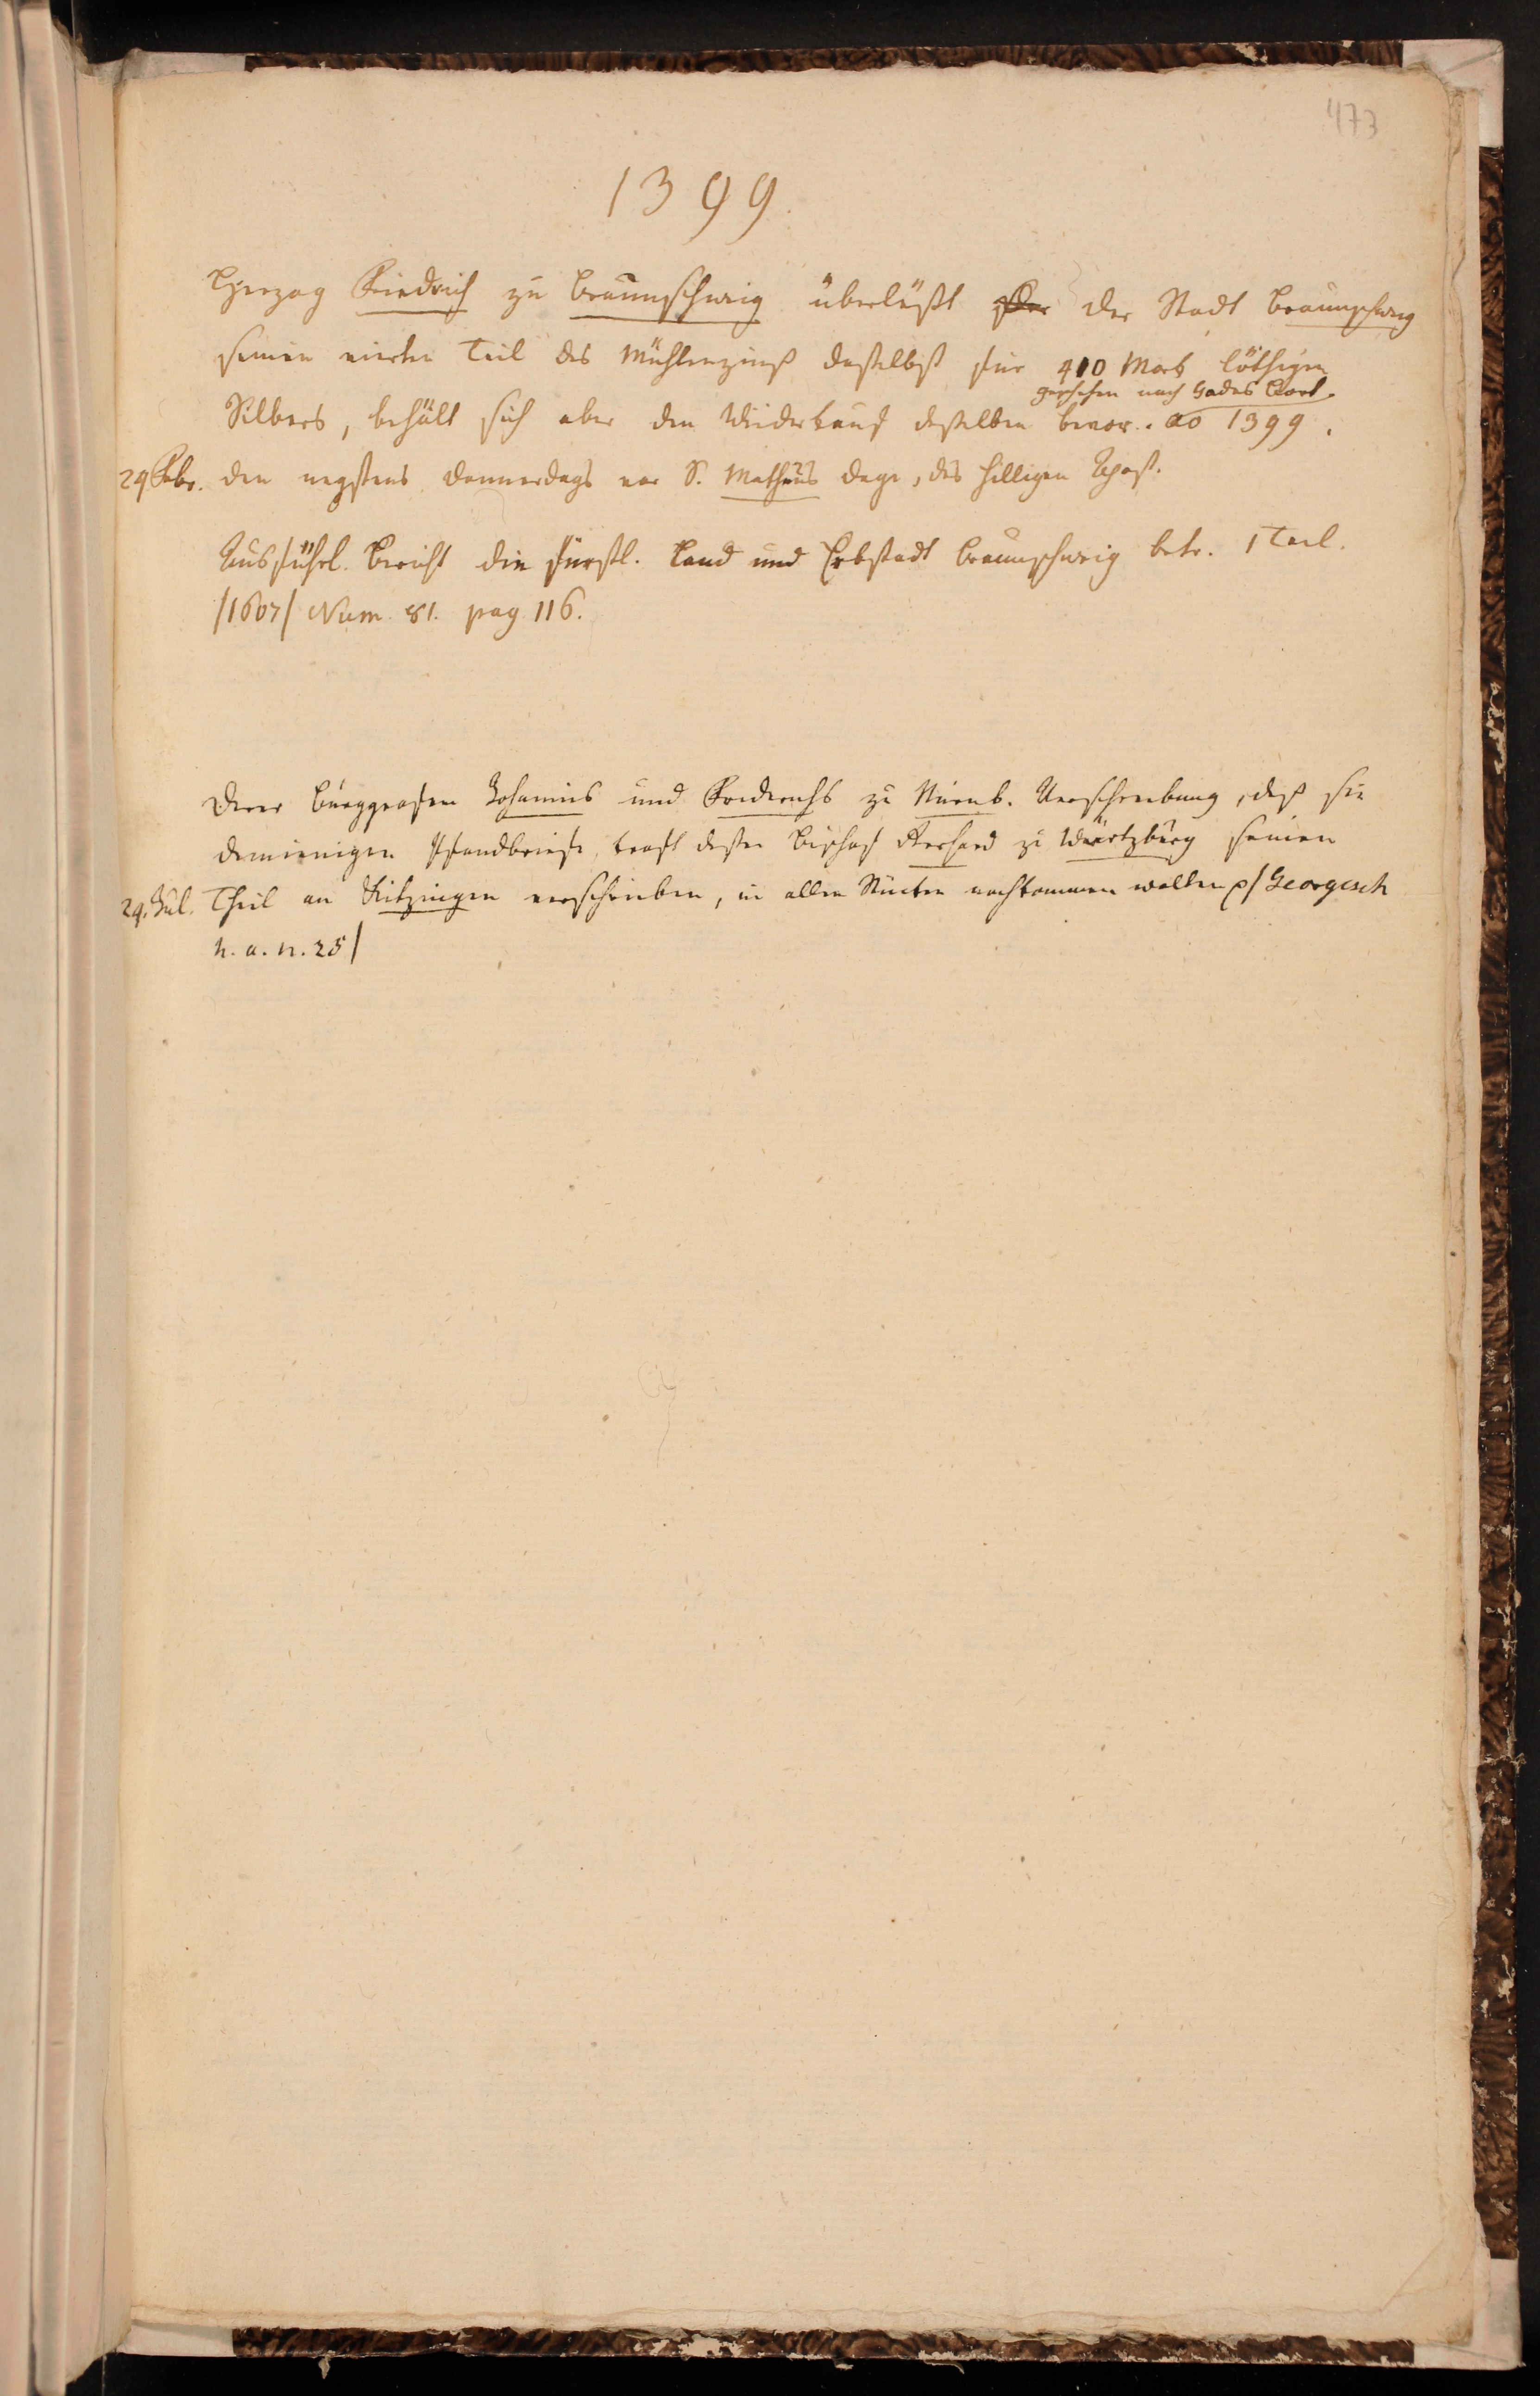 473
1399.
Herzog Friedrich zu Braunschweig überläßt der Stadt Braunschweig
seinen vierten Teil des Mühlenzinß daselbst für 410 Mark löthigen
geschehen nach Gades Bort.
Silbers, behält sich aber den Wiederkauf desselben bevor. ao 1399.
24 Febr. den negstens Donnerdags vor S. Matheus dage, des hilligen Apost.
Ausführl. Bericht die fürstl. Land und Erbstadt Braunschweig betr. 1 Teil.
/1607/ Num. 81. pag. 116.
Derer Burggrafen Johannis und Friedrichs zu Nürnb. Verschreibung, daß sie
demjenigen Pfandbriefe, kraft deßen Bischof Gerhard zu Würtzburg seinen
29. Jul. Theil an Kitzingen verschrieben, in allen Stücken nachkommen wollen p/ Georgisch
h. a. n. 25/